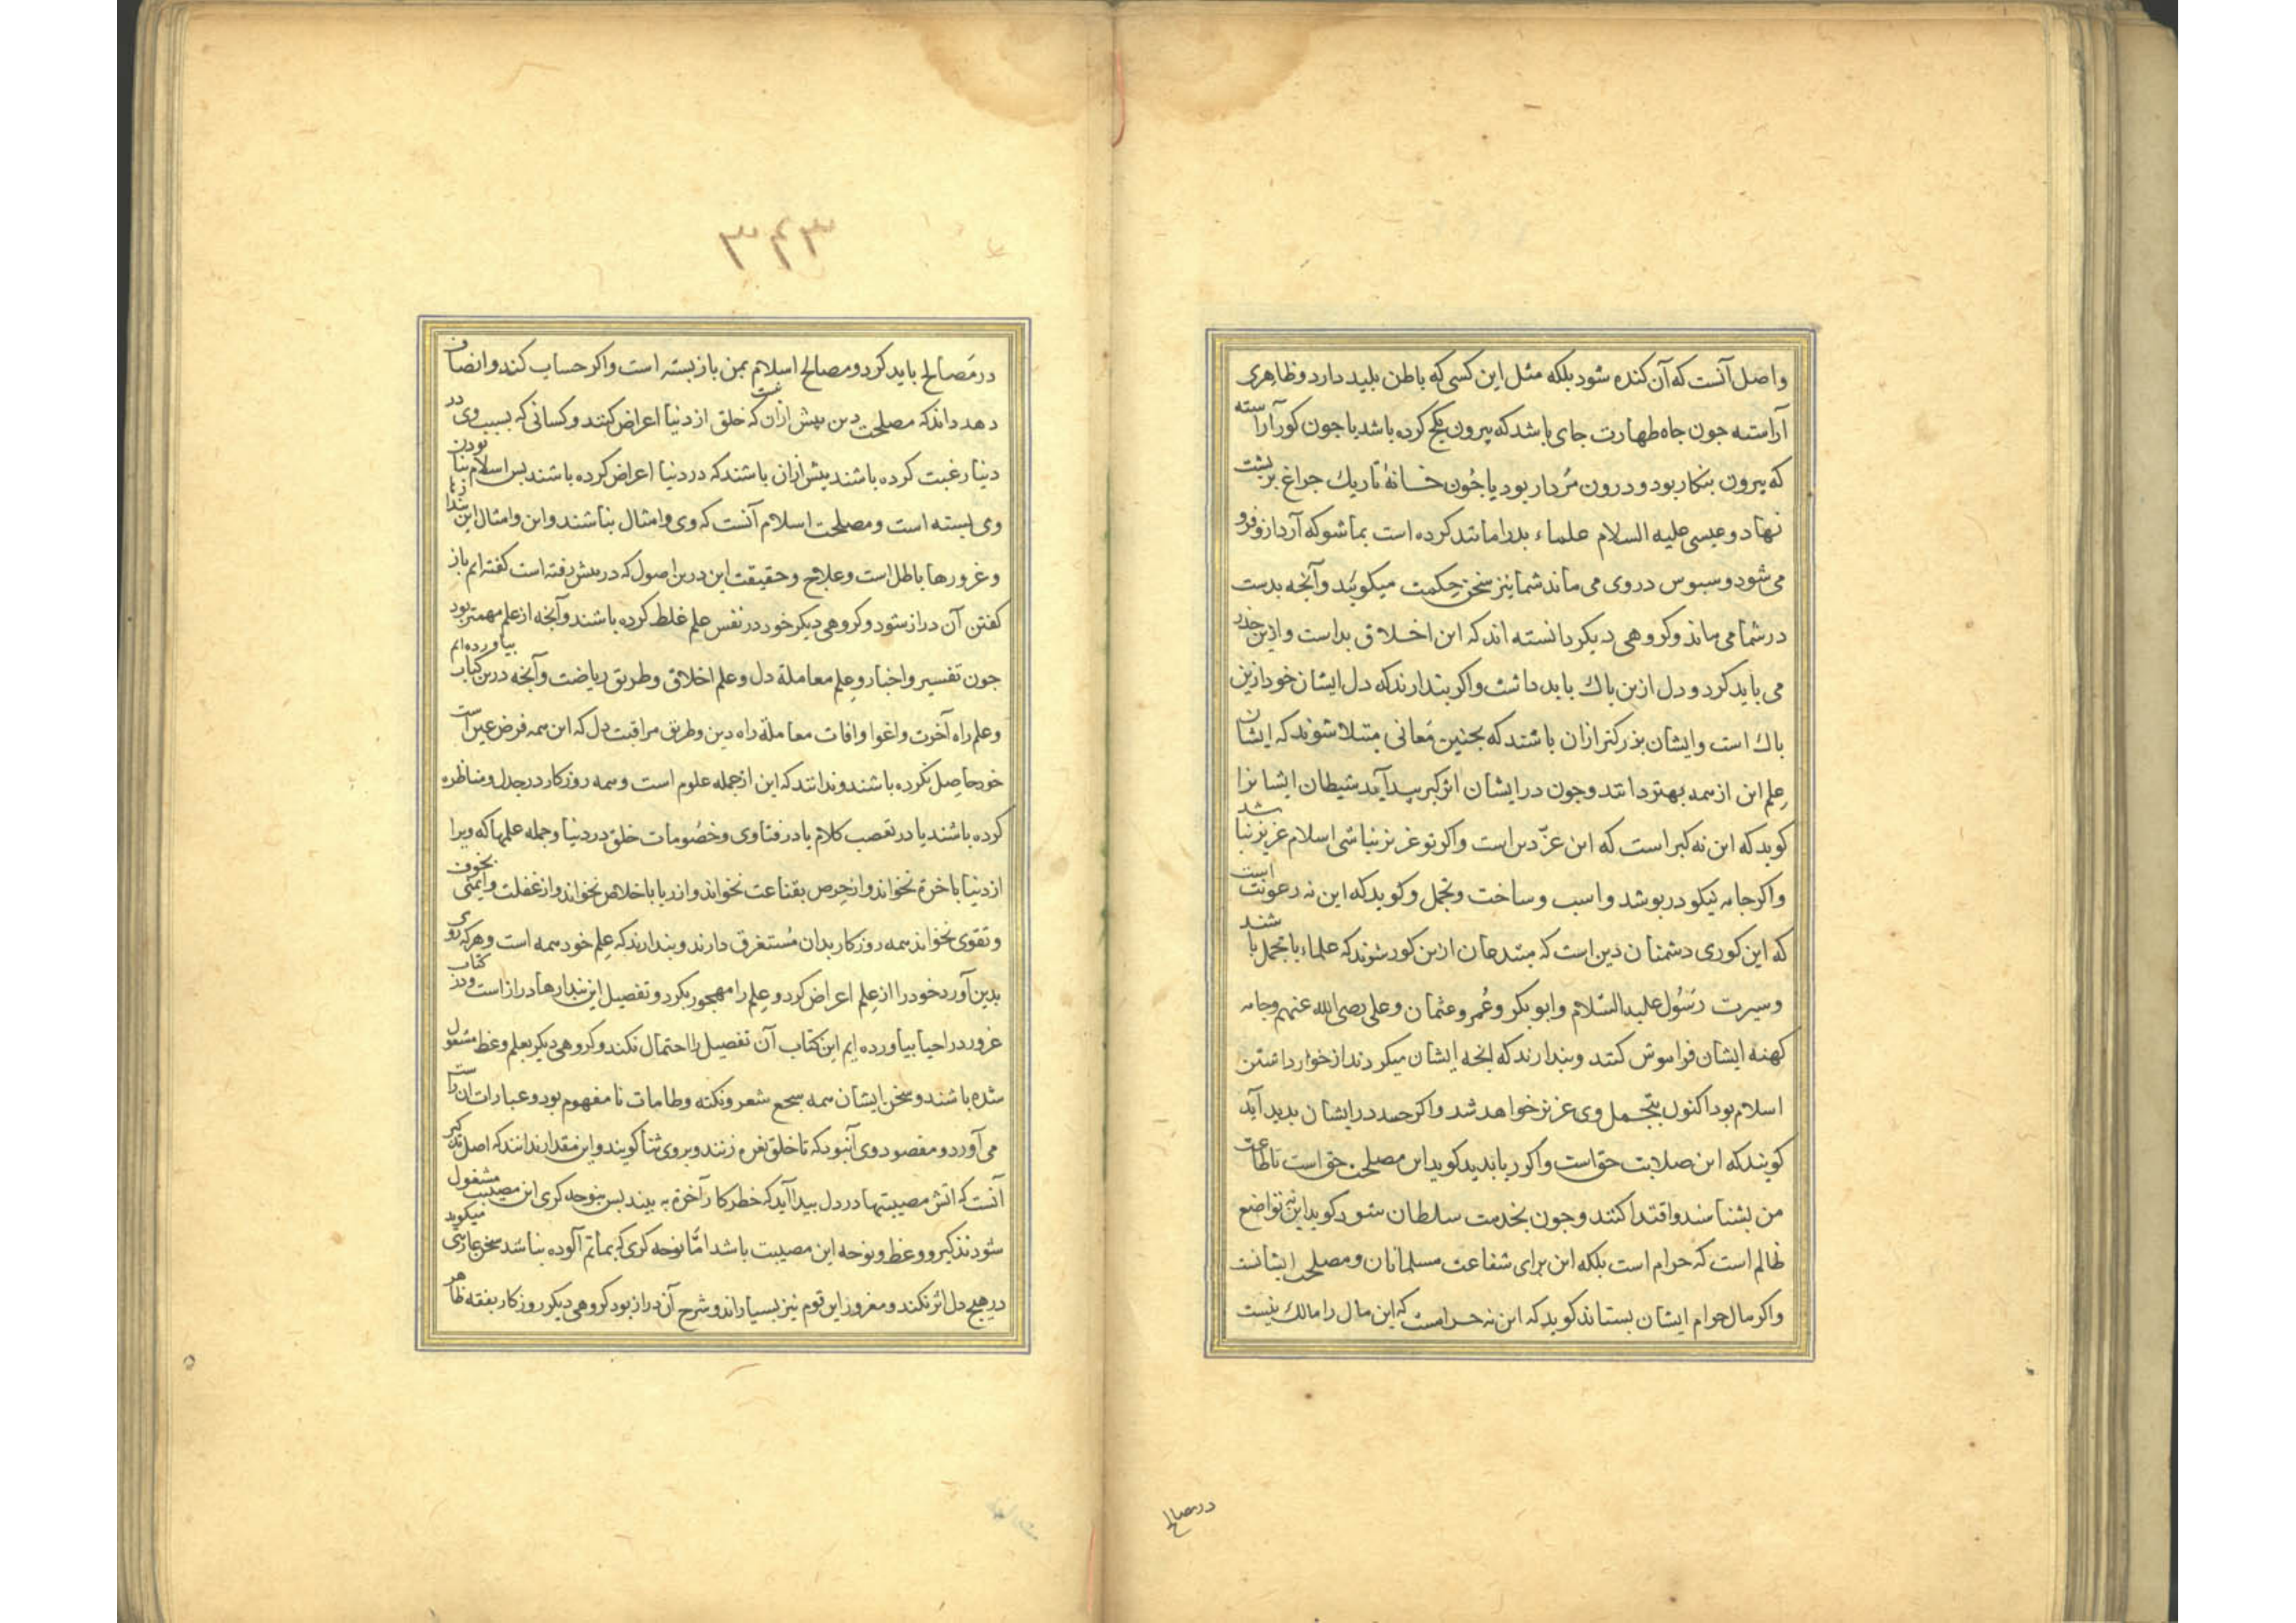 واصل آنست که آن کنده شود بلکه مثل این کسی که باطن بلید دارد وظاهری
آراسته جون جاه طهارت جای باشد که بیرون بکج کرده باشد یا جون کور آراسته
که بیرون بنکار بود و درون مردار بود یا جون خانهٔ تاریك جراغ بر بشت
نهاد و عیسی علیه السلام علماء بدرا مانند کرده است بماشو که آرد ازو فرو
می شود و سبوس در وی می ماند شما نیز سخن حکمت میکوئید وآنجه بدست
در شما می ماند وکروهی دیکر دانسته اند که این اخلاق بداست وازین حذر
می باید کرد و دل ازین باك باید داشت واکر بندارند که دل ایشان خود ازین
باك است وایشان بزرکتر ازان باشند که بجنین معانی مبتلا شوند که ایشان
علم این از همه بهتر دانند وجون در ایشان اثر کبر بیدا آید شیطان ایشانرا
کوید که این نه کبر است که این عز دین است واکر تو عزیز نباشی اسلام عزیز نباشد
واکر جامه نیکو در بوشد واسب وساخت وتجمل وکوید که این نه رعونت است
که این کوری دشمنان دین است که مبتدعان ازین کور شوند که علماء با تجمل باشند
وسیرت رسول علیه السلام وابو بکر وعمر وعثمان وعلی رضی الله عنهم وجامه
کهنه ایشان فراموش کنند وبندارند که انجه ایشان میکردند از خوار داشتن
اسلام بود اکنون بتجمل وی عزیز خواهد شد واکر حسد در ایشان بدید آید
کویند که این صلابت حق است واکر ریا بدید کوید این مصلحت حق است تا طاعت
من بشناسند واقتدا کنند وجون بخدمت سلطان شود کوید این نه تواضع
ظالم است که حرام است بلکه این برای شفاعت مسلمانان ومصلحت ایشانست
واکر مال حرام ایشان بستاند کوید که این نه حرامست که این مال را مالك نیست
در مصالح
۳۴۳
در مصالح باید کرد ومصالح اسلام بمن باز بسته است واکر حساب کند وانصاف
دهد داند که مصلحت دین بیش ازان نیست که خلق از دنیا اعراض کنند وکسانی که بسبب وی در
دنیا رغبت کرده باشند بیش ازان باشند که در دنیا اعراض کرده باشند بس اسلام بنا بودن
وی بسته است ومصلحت اسلام آنست که وی وامثال بناشند واین وامثال این بندارها
وغرورها باطل است وعلاج وحقیقت این درین اصول که در بیش رفته است کفته ایم باز
کفتن آن دراز شود وکروهی دیکر خود در نفس علم غلط کرده باشند وآنجه از علم مهمتر بود
جون تفسیر واخبار وعلم معاملة دل وعلم اخلاق وطریق ریاضت وآنجه درین کتاب بیاورده ایم
وعلم راه آخرت واغوا وافات معاملة راه دین وطریق مراقبت دل که این همه فرض عین است
خود حاصل نکرده باشند وندانند که این از جمله علوم است وهمه روزکار در جدل ومناظره
کرده باشند یا در تعصب کلام یا در فتاوی وخصومات خلق در دنیا وجمله علمها که ویرا
از دنیا باخرة نخواند واز حرص بقناعت نخواند واز ریا باخلاص نخواند واز غفلت وایمنی بخوف
وتقوی نخواند همه روزکار بدان مستغرق دارند وبندارند که علم خود همه است وهرکه روی
بدین آورد خود را از علم اعراض کرد وعلم را مهجور بکرد وتفصیل این بندارها دراز است ودر کتاب
غرور در احیا بیاورده ایم این کتاب آن تفصیل را احتمال نکند وکروهی دیکر بعلم وعظ مشغول
شده باشند وسخن ایشان همه سجع شعر ونکته وطامات نا مفهوم بود وعبارات ان راست
می آورد ومقصود وی آنبود که تا خلق نعره زنند وبر وی ثنا کویند واین مقدار ندانند که اصل تذکیر
آنست که اتش مصیبتها در دل بیدا آید که خطر کار آخرة به بیند بس بنوحه کری این مصیبت مشغول
شود تذکیر ووعظ ونوحه این مصیبت باشد اما نوحه کری که بماتم آلوده بناشد سخن عاریتی میکوید
در هیج دل اثر نکند ومغرور این قوم نیز بسیاراند وشرح آن دراز بود کروهی دیکر روزکار بفقه ظاهر